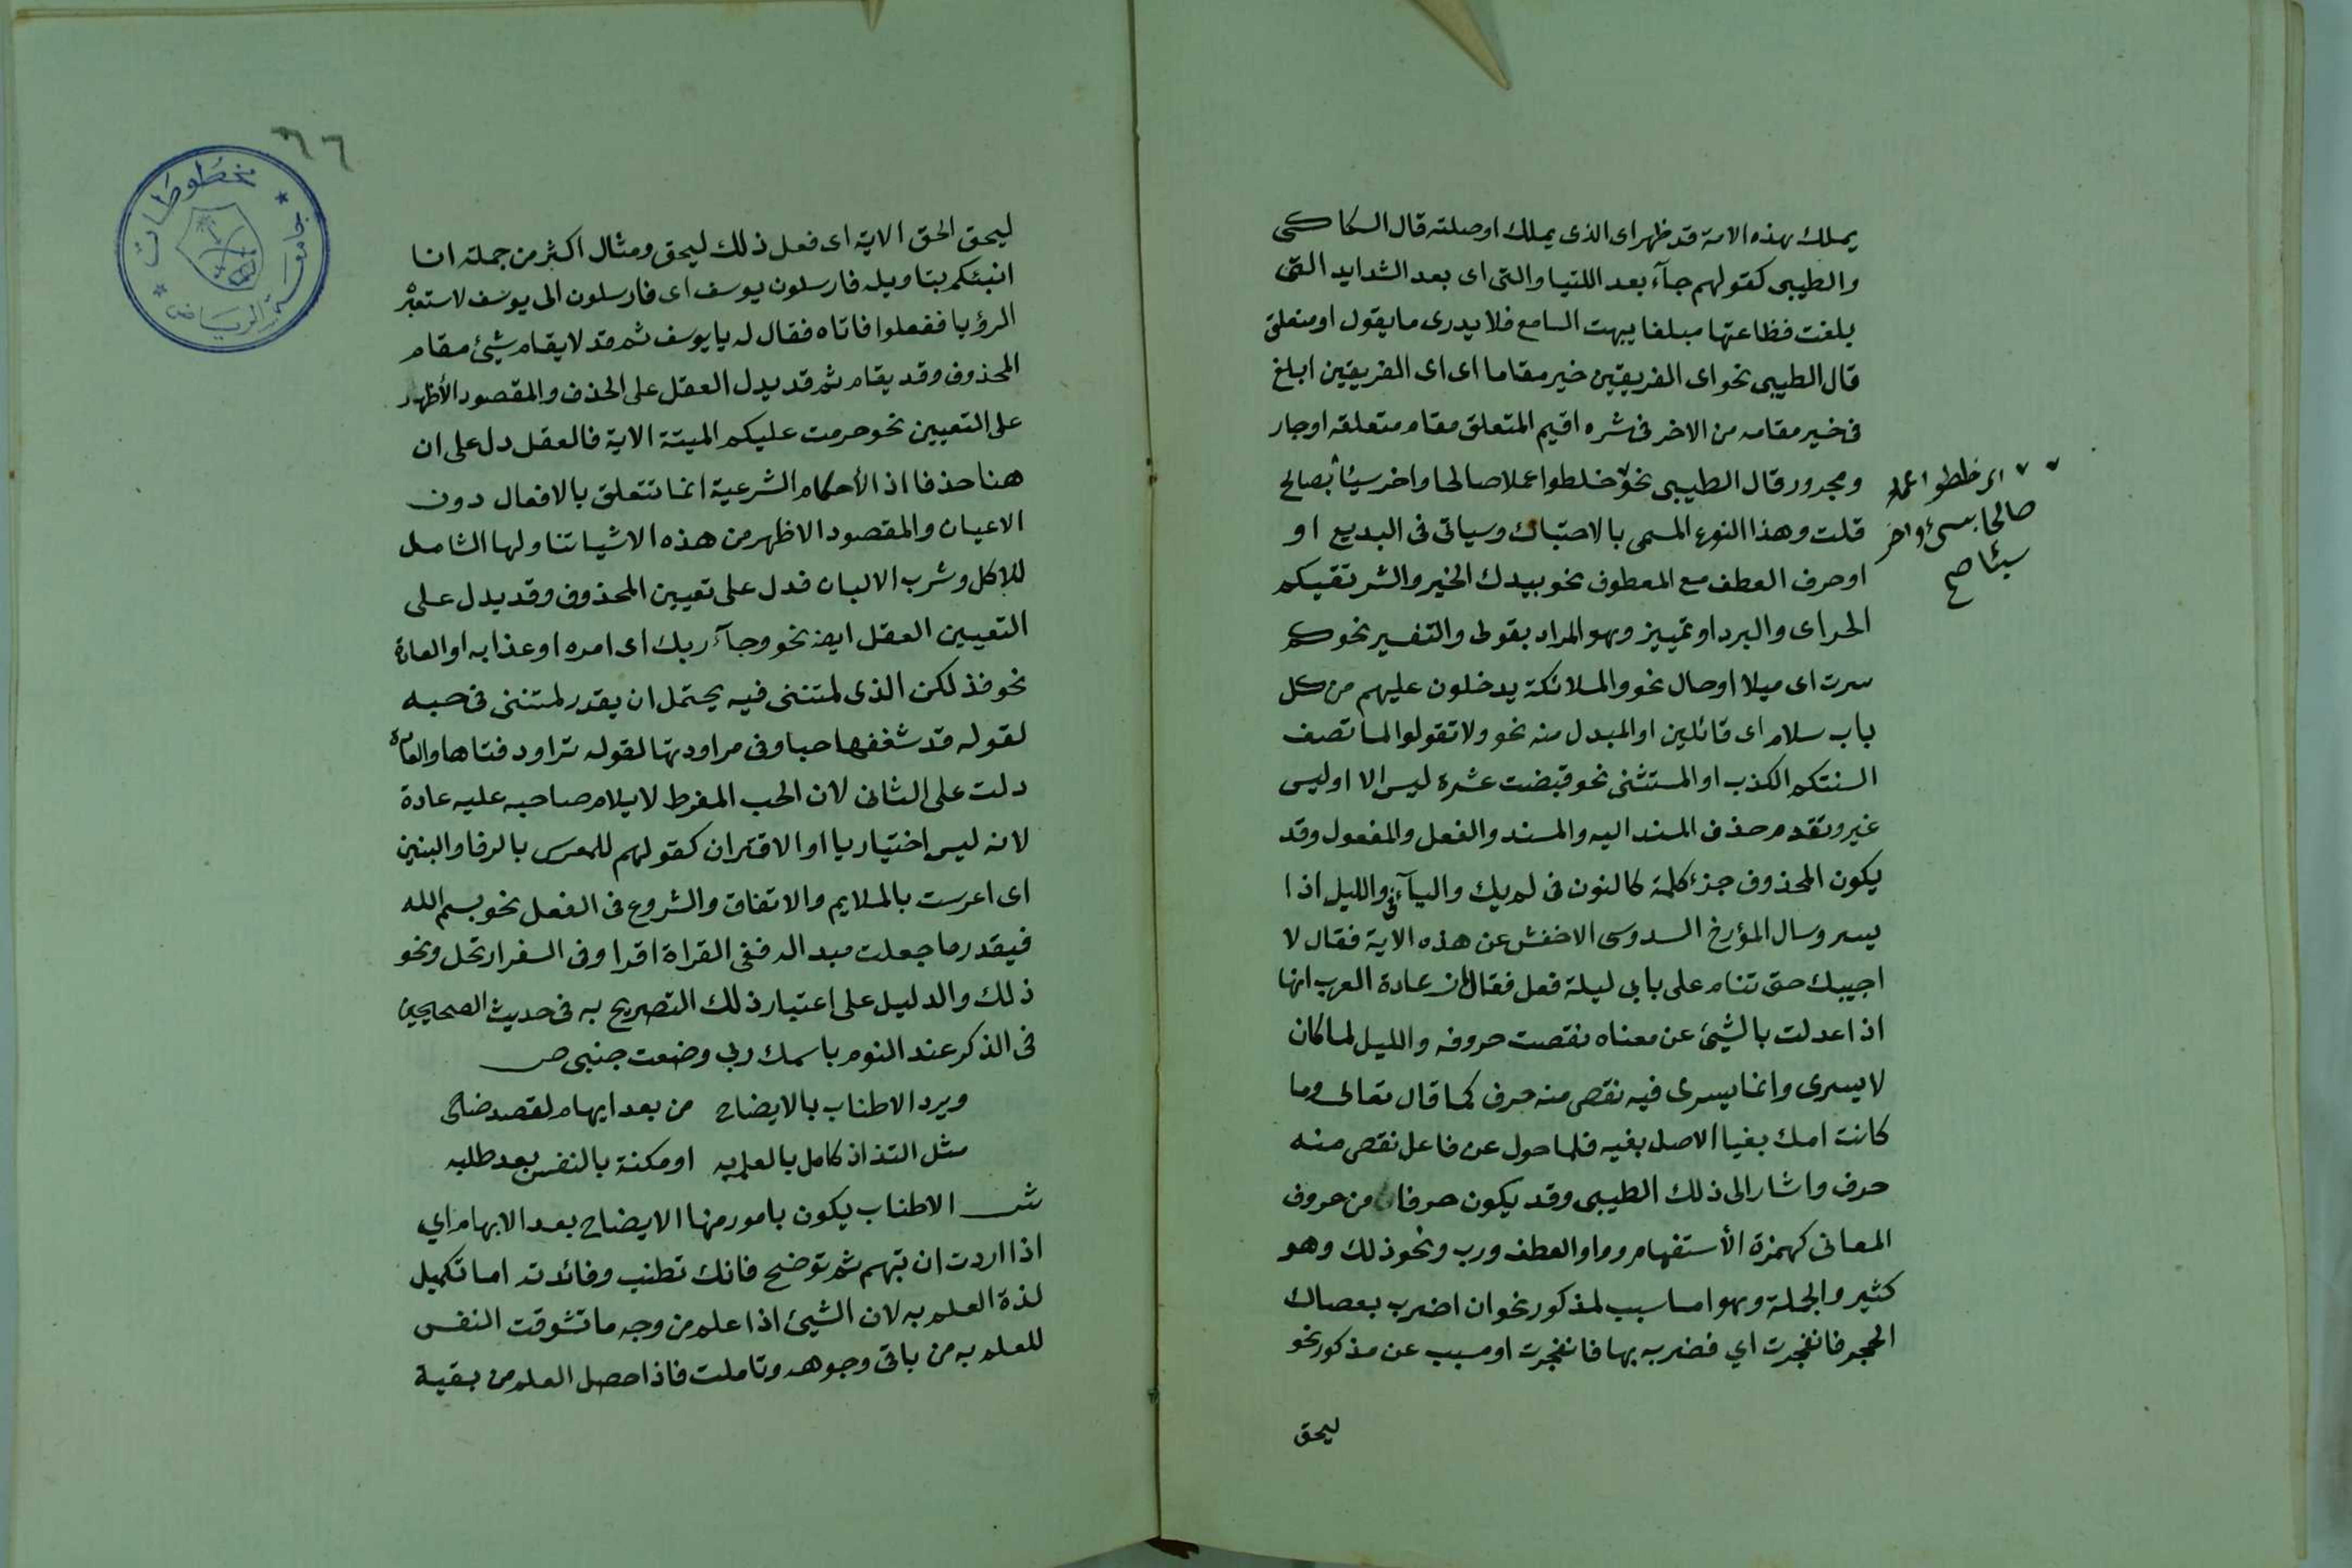 يملك بهذه الامة قد ظهر اى الذى يملك او صلته قال السكاكى
والطيبى كقولهم جآء بعد اللتيا والتى اى بعد الشدايد التى
بلغت فظاعتها مبلغا يبهت السامع فلا يدرى ما يقول او متعلق
قال الطيبى نحو اى الفريقين خير مقاما اى اى الفريقين ابلغ
فى خير مقامه من الاخر فى شره اقيم المتعلق مقام متعلقه او جار
ومجرور قال الطيبى نحو خلطوا عملا صالحا واخر سيئا بصالح
قلت وهذا النوع المسمى بالاحتباك وسياتى فى البديع او
او حرف العطف مع المعطوف نحو بيدك الخير والشر تقيكم
الحر اى والبرد او تمييز وهو المراد بقولى والتفسير نحو كم
سرت اى ميلا او حال نحو والملائكة يدخلون عليهم من كل
باب سلام اى قائلين او المبدل منه نحو ولا تقولوا لما تصف
السنتكم الكذب او المستثنى نحو قبضت عشرة ليس الا او ليس
غير وتقدم حذف المسند اليه والمسند والفعل والمفعول وقد
يكون المحذوف جزء كلمة كالنون فى لم يك واليآء فى والليل اذا
يسر وسال المؤرخ السدوسى الاخفش عن هذه الاية فقال لا
اجيبك حتى تنام على بابى ليلة فعل فقال ان عادة العرب انها
اذا عدلت بالشيئ عن معناه نقصت حروفه والليل لما كان
لا يسرى وانما يسرى فيه نقص منه حرف كما قال تعالى وما
كانت امك بغيا الاصل بغيه فلما حول عن فاعل نقص منه
حرف واشار الى ذلك الطيبى وقد يكون حرفا من حروف
المعانى كهمزة الأستفهام وواو العطف ورب ونحو ذلك وهو
كثير والجملة وهو اما سبب لمذكور نحو ان اضرب بعصاك
الحجر فانفجرت اي فضربه بها فانفجرت او مسبب عن مذكور نحو
ليحق
اى خلطوا عملا
صالحا بسيئ واخر
سيئا صح
٦٦
مخطوطات
جامعة الرياض
ليحق الحق الاية اى فعل ذلك ليحق ومثال اكثر من جملة انا
انبئكم بتاويله فارسلون يوسف اى فارسلون الى يوسف لاستعبر
الرؤيا ففعلوا فاتاه فقال له يا يوسف ثم قد لا يقام شيئ مقام
المحذوف وقد يقام ثم قد يدل العقل على الحذف والمقصود الأظهر
على التعيين نحو حرمت عليكم الميتة الاية فالعقل دل على ان
هنا حذفا اذ الأحكام الشرعية انما تتعلق بالافعال دون
الاعيان والمقصود الاظهر من هذه الاشيا تناولها الشامل
للاكل وشرب الالبان فدل على تعيين المحذوف وقد يدل على
التعيين العقل ايضا نحو وجآء ربك اى امره او عذابه او العادة
نحو فذلكن الذى لمتننى فيه يحتمل ان يقدر لمتننى فى حبه
لقوله قد شغفها حبا وفى مراودتها لقوله تراود فتاها والعادة
دلت على الثانى لان الحب المفرط لا يلام صاحبه عليه عادة
لانه ليس اختياريا او الاقتران كقولهم للمعرس بالرفا والبنين
اى اعرست بالملايم والاتفاق والشروع فى الفعل نحو بسم الله
فيقدر ما جعلت مبدا له ففى القراة اقرا وفى السفر ارتحل ونحو
ذلك والدليل على اعتبار ذلك التصريح به فى حديث الصحيحين
فى الذكر عند النوم باسمك ربى وضعت جنبى ص
ويرد الاطناب بالايضاح من بعد ايهام لقصد ضاحى
مثل التذاذ كامل بالعلم به او مكنة بالنفس بعد طلبه
ش الاطناب يكون بامور منها الايضاح بعد الابهام اي
اذا اردت ان تبهم ثم توضح فانك تطنب وفائدته اما تكميل
لذة العلم به لان الشيئ اذا علم من وجه ما تشوقت النفس
للعلم به من باقى وجوهه وتاملت فاذا حصل العلم من بقية